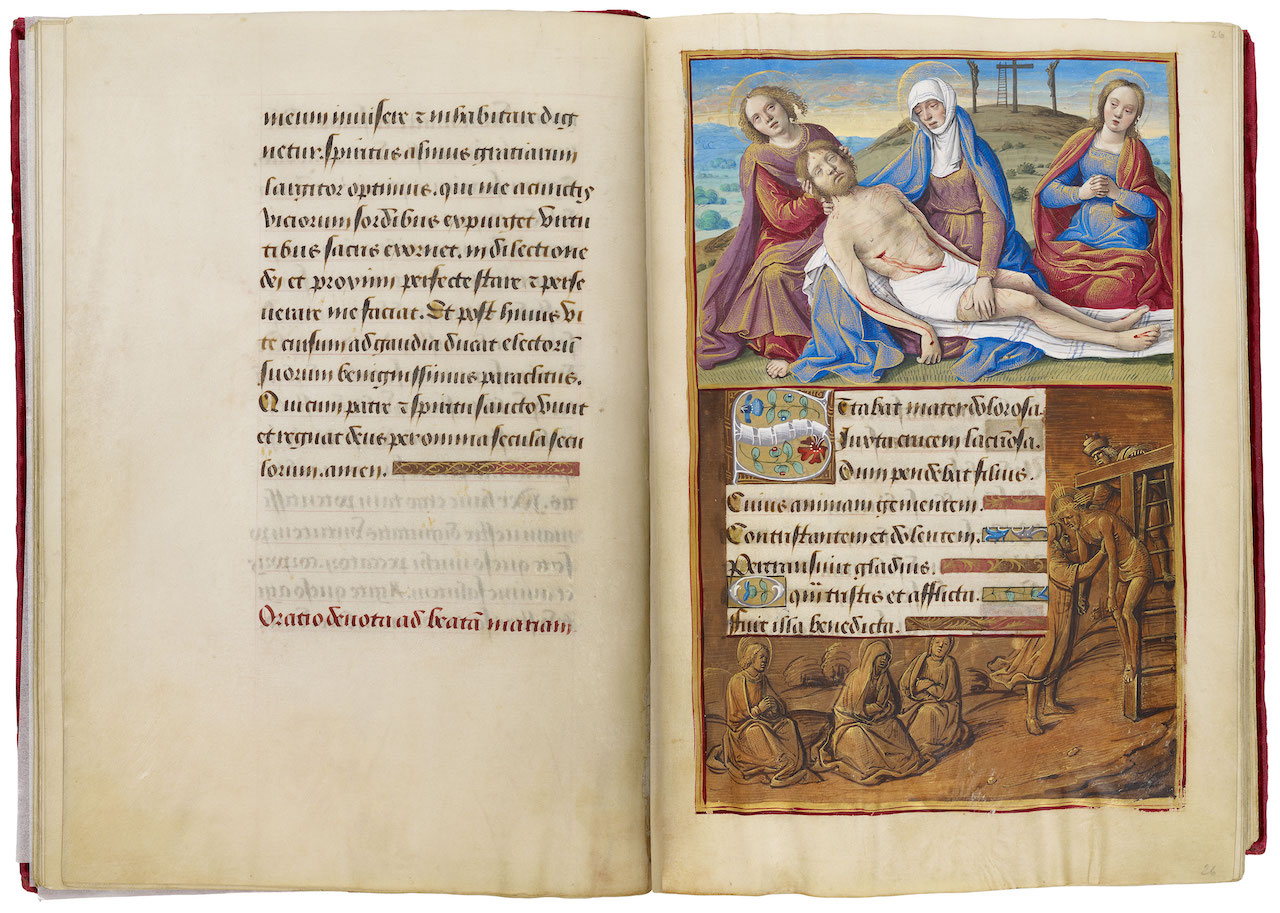 meum inuisere ⁊ inhabitare dig
netur. Spiritus almus gratiarum
largitor optimus, qui me a cunctis
viciorum sordibus expurget virtu
tibus sacris exornet. in dilectione
dei et proximi perfecte stare ⁊ perse
uerare me faciat. Et post huius vi
te cursum ad gaudia ducat electorū
suorum benignissimus paraclitus.
Qui cum patre ⁊ spiritu sancto viuit
et regnat deus per omnia secula secu
lorum. amen.
Oratio deuota ad beatā mariam
26
Stabat mater dolorosa.
Iuxta crucem lacrosa.
Dum pendebat filius.
Cuius animam gementem.
Contristantem et dolentem.
Pertransiuit gladius.
O q̄ tristis et afflicta.
Fuit illa benedicta.
26